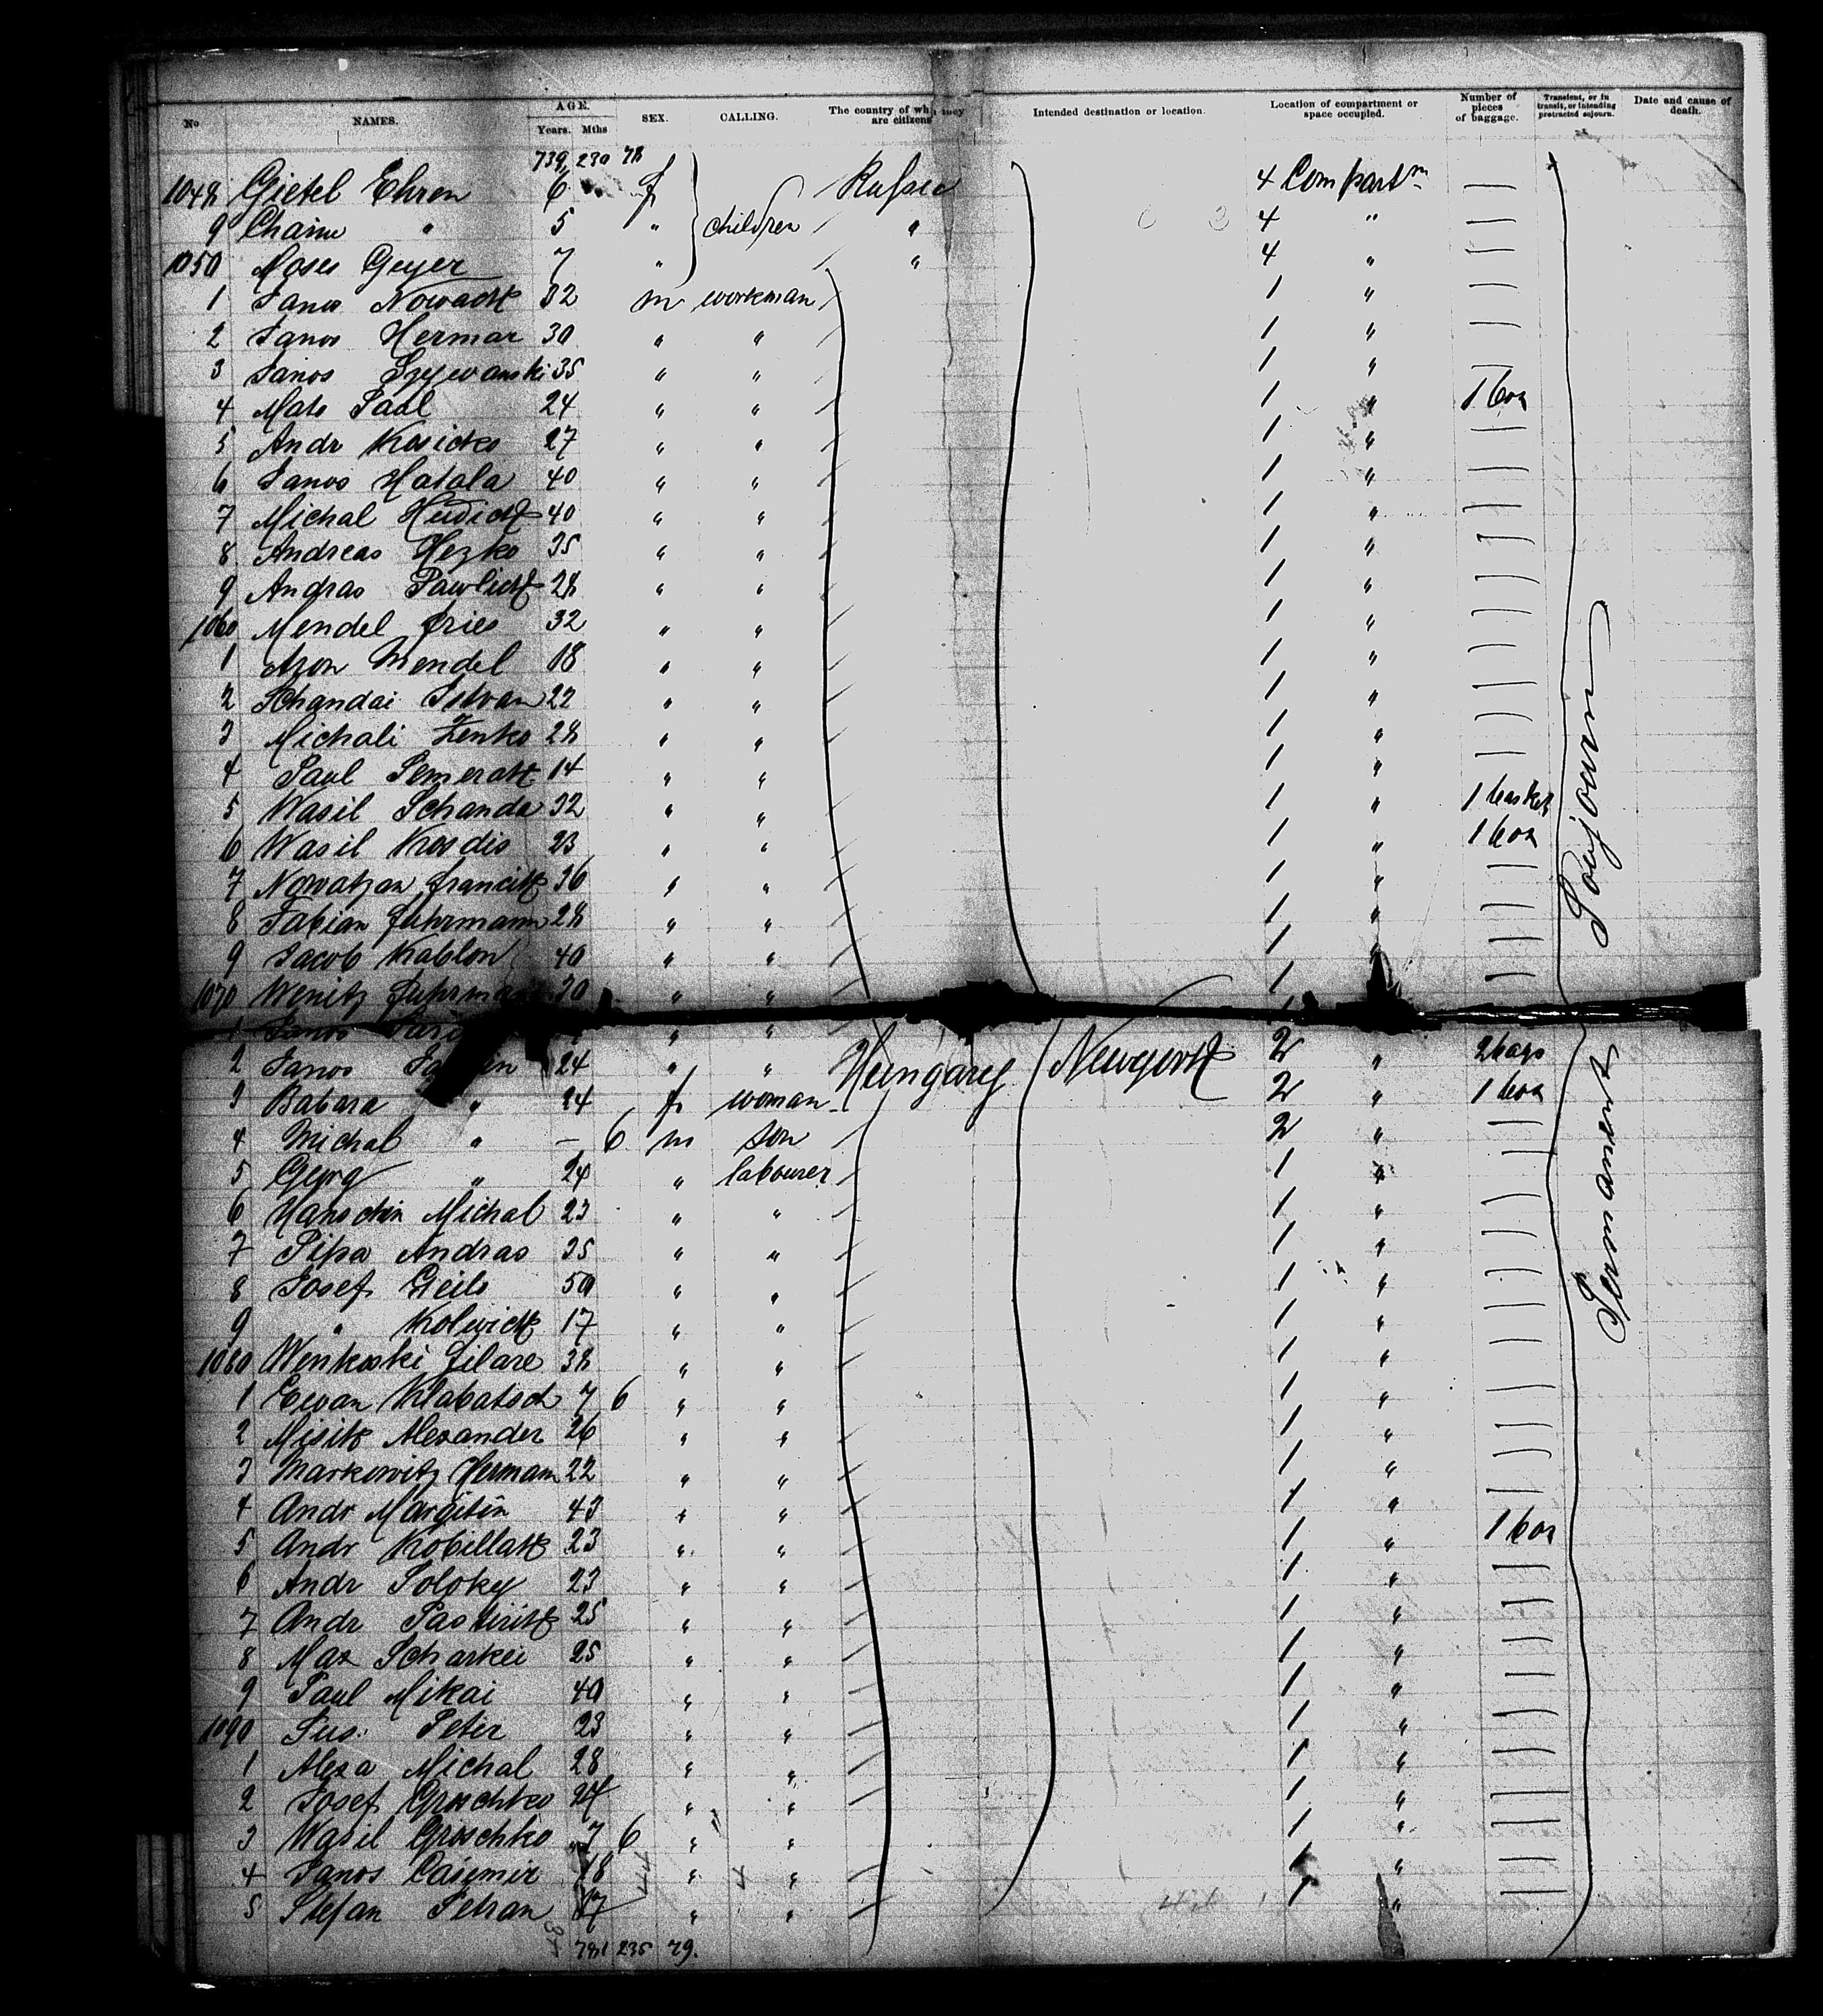 No NAMES. AGE. Years. Mths SEX. CALLING. The country of which they are citizens Intended destination or location. Location of compartment or space occupied. Number of pieces of baggage. Transient, or in transit, or intending protracted sojourn. Date and cause of death.
739 230 78
1048 Gietel Ehren 6 f children Russia 4 Compartm
9 Chaim " 5 " " 4 "
1050 Moses Geyer 7 " " 4 "
1 Janos Nowack 32 m workman 1 "
2 Janos Hermar 30 " " 1 "
3 Janos 35 " " 1 "
4 Mats Paul 24 " " 1 " 1 box
5 Andr Kosicko 27 " " 1 "
6 Janos Hatala 40 " " 1 "
7 Michal 40 " " 1 "
8 Andreas Hezko 35 " " 1 "
9 Andras Pawlick 28 " " 1 "
1060 Mendel Fries 32 " " 1 "
1 Aron Mendel 18 " " 1 "
2 Schandai Istvan 22 " " 1 "
3 Michali Zenko 28 " " 1 "
4 Paul Semerak 14 " " 1 "
5 Wasil Schanda 32 " " 1 " 1 basket
6 Wasil Kosdis 23 " " 1 " 1 box
7 36 " " 1 "
8 Fabian Fuhrmann 28 " " 1 "
9 Jacob Kablon 40 " " 1 "
1070 Wenitz 30 " " 1
1 Janos " "
2 Janos 24 " " Hungary Newyork 2 " 2 bags
3 Babara " 24 f woman 2 " 1 box
4 Michal " — 6 m son 2 "
5 Georg " 24 " labourer 1 "
6 Hanochin Michal 23 " " 1 "
7 Pipa Andras 35 " " 1 "
8 Josef Geils 50 " " 1 "
9 " Kolwick 17 " " 1 "
1080 Wenkoski Filare 38 " " 1 "
1 Ewan Klabatsch 7 6 " " 1 "
2 Misik Alexander 26 " " 1 "
3 Markowitz Herman 22 " " 1 "
4 Andr Margitin 43 " " 1 "
5 Andr Kobillak 23 " " 1 " 1 box
6 Andr Soloky 23 " " 1 "
7 Andr Pastirik 25 " " 1 "
8 Max Scharkei 25 " " 1 "
9 Paul Mikai 40 " " 1 "
1090 Sus: Peter 23 " " 1 "
1 Alexa Michal 28 " " 1 "
2 Josef Groschko 24 " " 1 "
3 Wasil Groschko 7 6 " " 1 "
4 Janos Casimir 18 " " 1 "
5 Stefan Petran 17 " " 1 "
781 235 79.
Permanent Soujourn